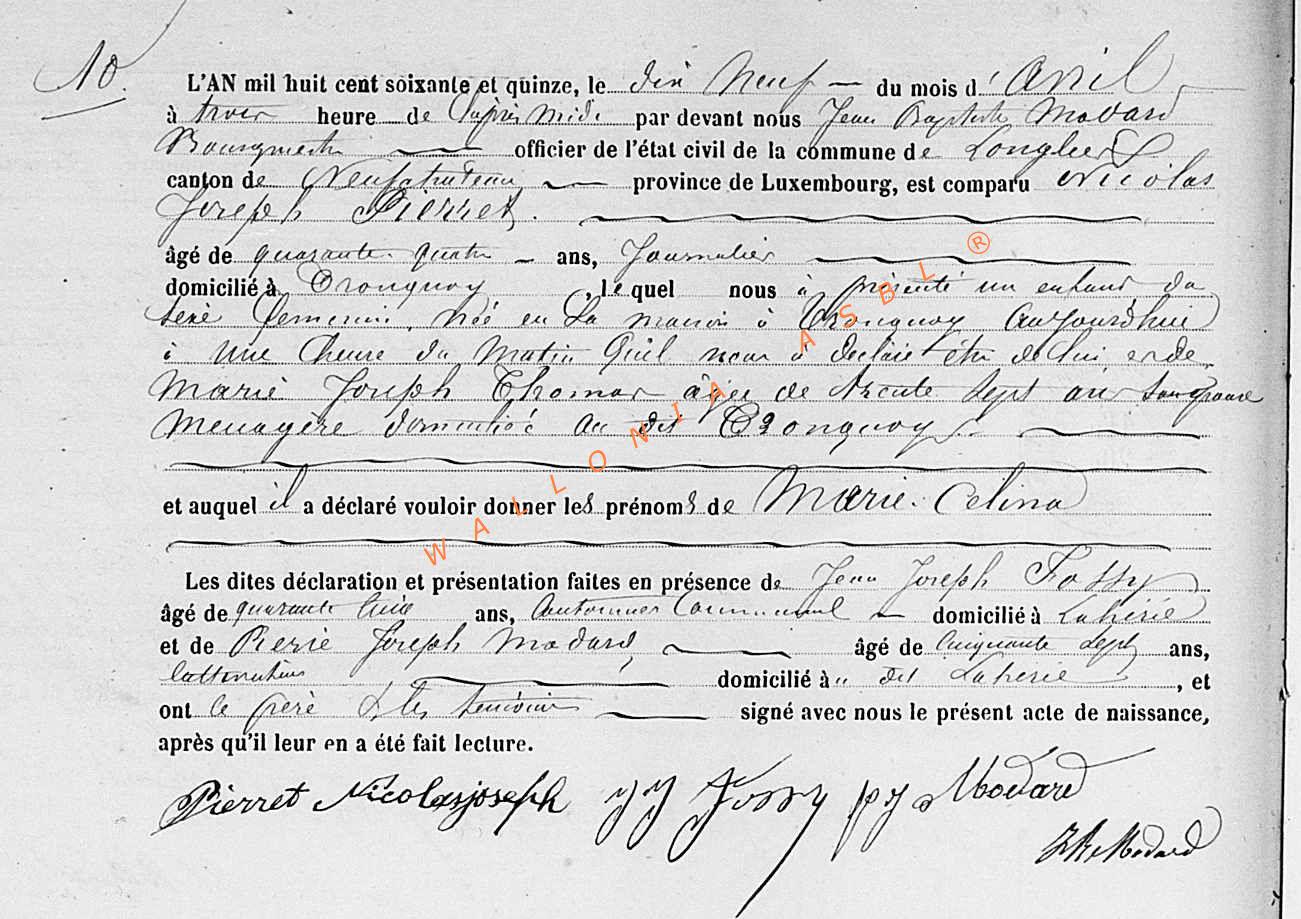 10.
L'AN mil huit cent soixante et quinze, le dix Neuf du mois d'Avril
à trois heure de l'après midi par devant nous Jean Baptiste Modard
Bourgmestre officier de l'état civil de la commune de Longlier
canton de Neufchateau province de Luxembourg, est comparu Nicolas
Joseph Pierret.
âgé de quarante quatre ans, Journalier
domicilié à Tronquoy, lequel nous à présenté un enfant du
sexe feminin, Née en Sa maison à Tronquoy Aujourdhui
à Une heure du Matin Quil nous à declaré être de lui et de
Marie Joseph Thomas âgée de trente Sept ans
Menagère domiciliée au dit Tronquoy.
et auquel il a déclaré vouloir donner les prénoms de Marie. Celina
Les dites déclaration et présentation faites en présence de Jean Joseph Fossy
âgé de quarante ans, Cantonnier Communal domicilié à Laherie
et de Pierre Joseph Modard, âgé de Cinquante Sept ans,
Cultivateur domicilié à u dit Laherie, et
ont le père & les temoins signé avec nous le présent acte de naissance,
après qu'il leur en a été fait lecture.
Pierret Nicolas joseph J J Fossy p J Modard
J B Modard
WALLONIA ASBL ®